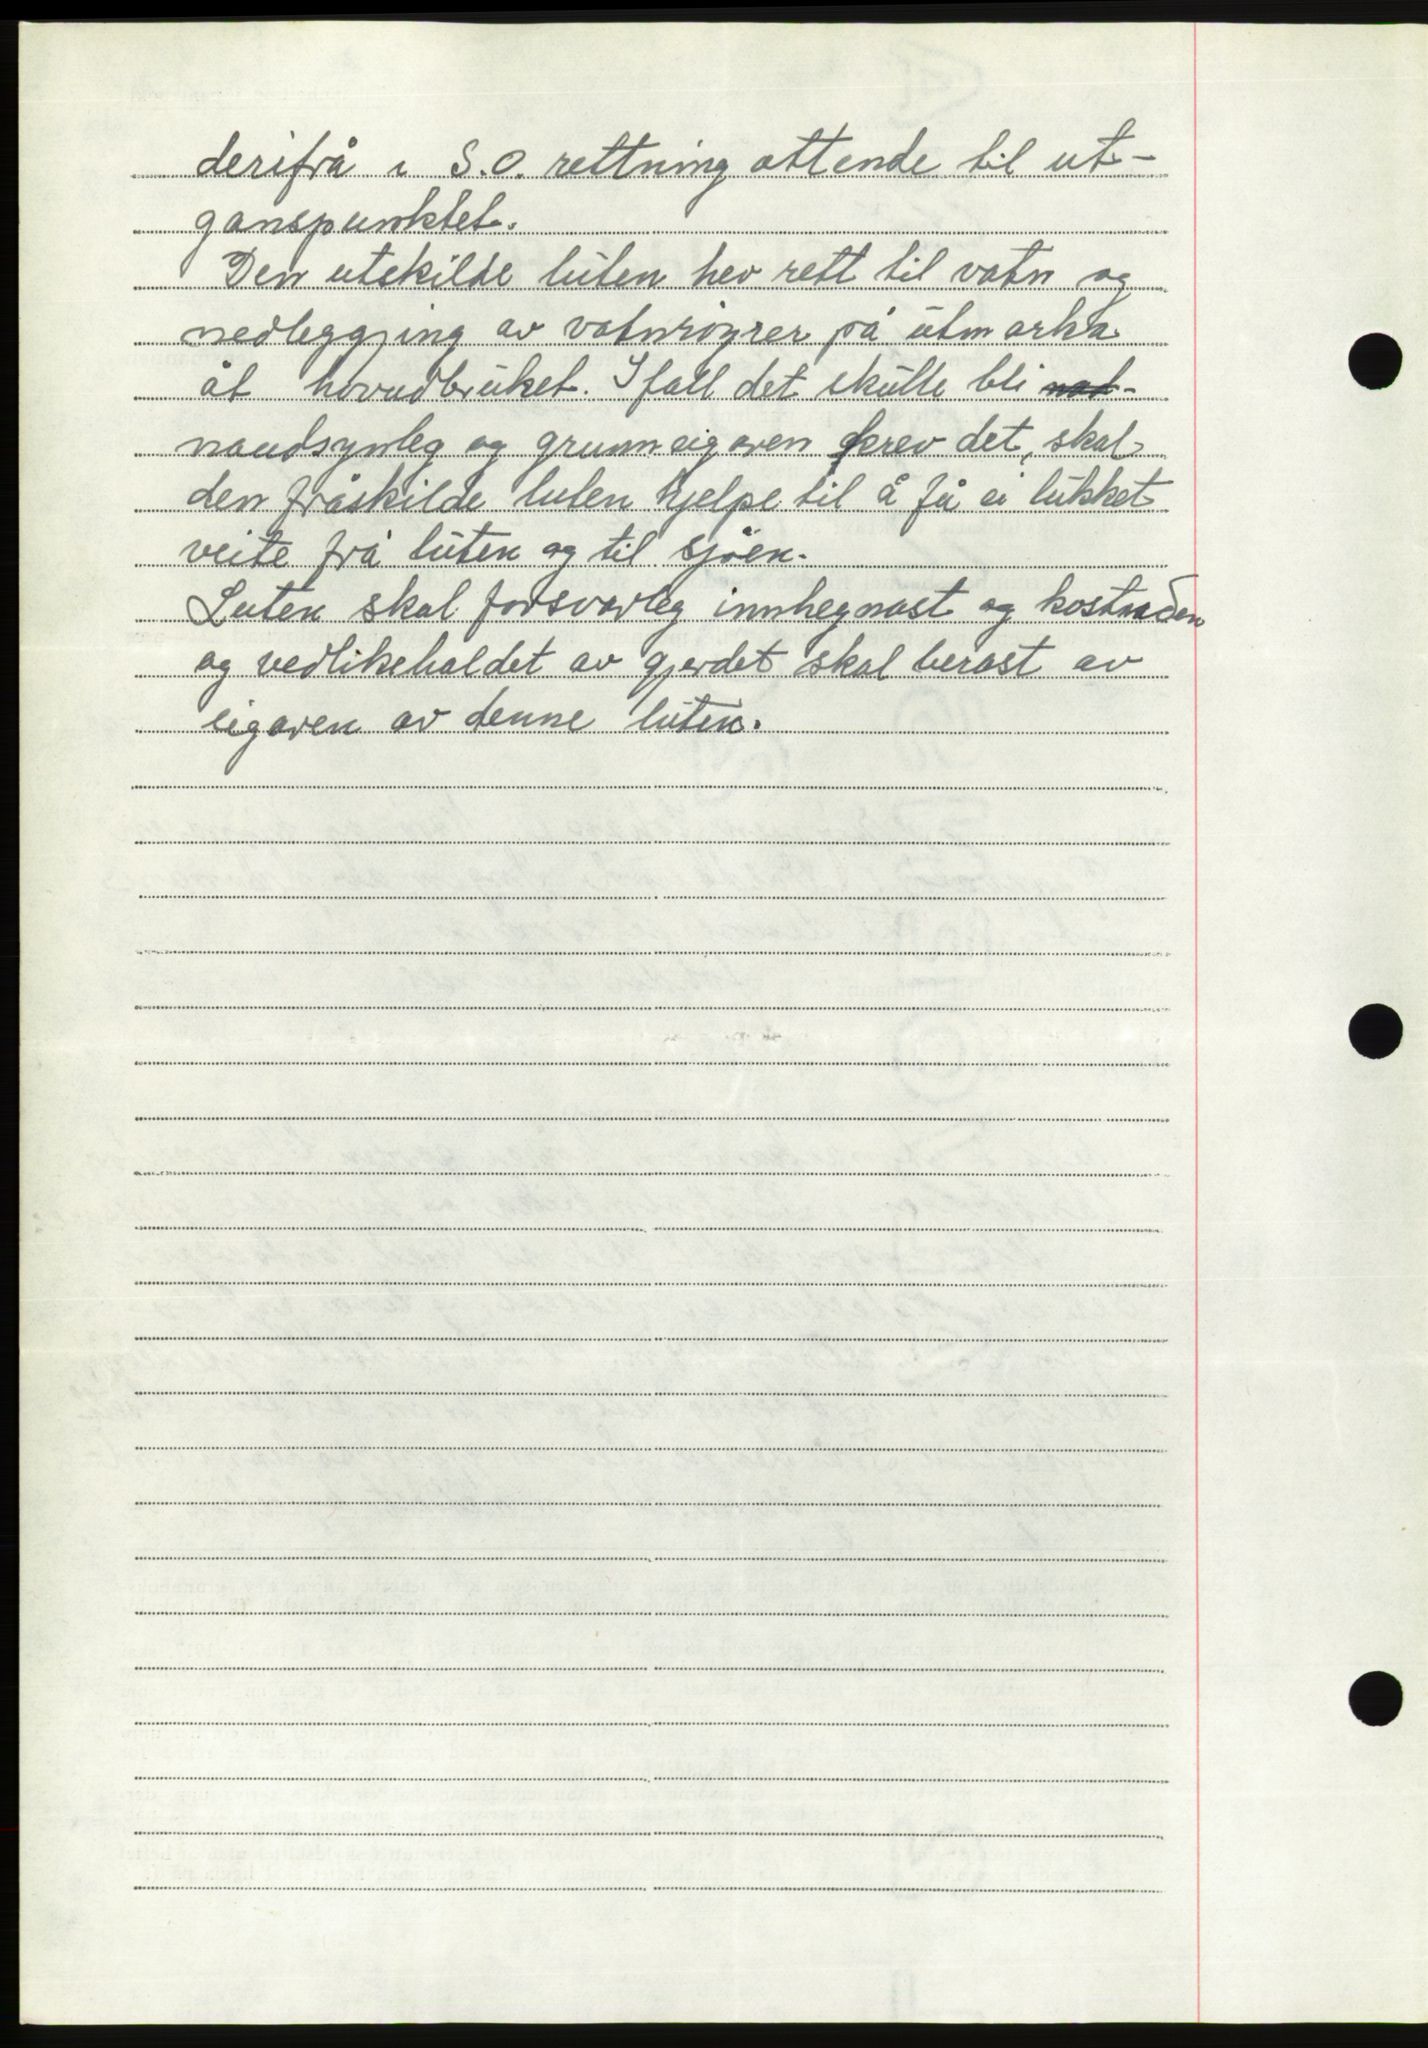 derifrå i S.O. rettning attende til ut-
ganspunktet.
Den utskilde luten hev rett til vatn og
nedleggjing av vatnröyrer på utmarka
åt hovudbruket. I fall det skulle bli
naudsynleg og grunneigaren krev det, skal
den fråskilde luten hjelpe til å få ei lukket
veite frå luten og til sjöen.
Luten skal forsvarleg innhegnast og kostnaden
og vedlikehaldet av gjerdet skal berast av
eigaren av denne luten.